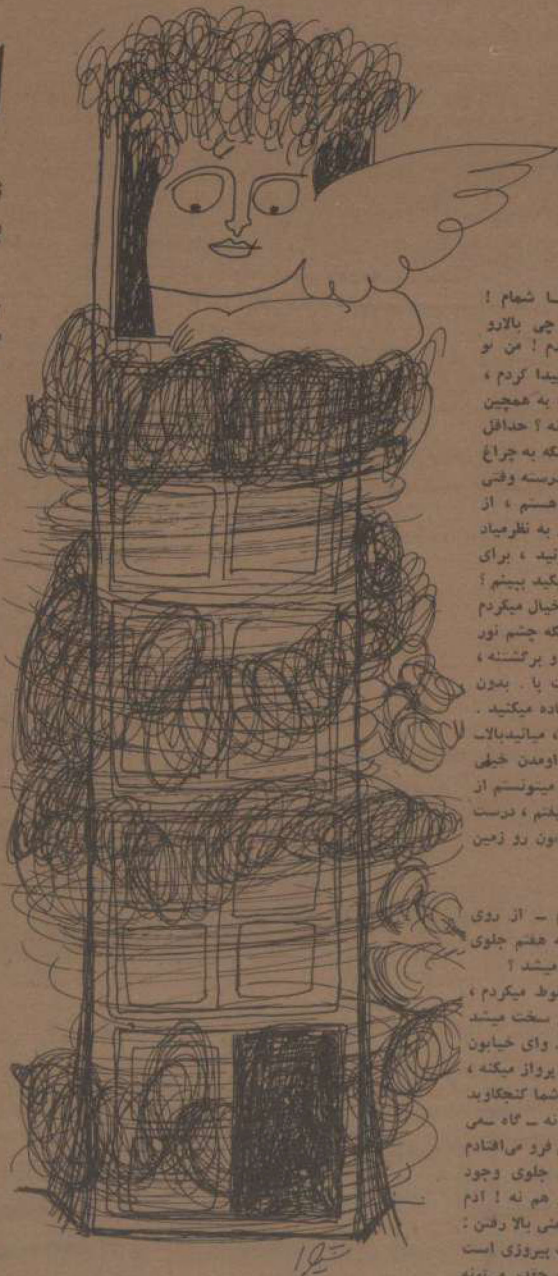 با شمام !
چی بالارو
دم ! من تو
پیدا کردم ،
به همچین
نه ؟ حداقل
که به چراغ
درسته وقتی
هستم ، از
به نظرمیاد
نید ، برای
کنید ببینم ؟
خیال میکردم
که چشم نور
و برگشته ،
با . بدون
ده میکنید .
، میائیدبالات
اومدن خیلی
میتونستم از
درست
ون رو زمین
ـ از روی
هفتم جلوی
میشد ؟
وط میکردم ،
سخت میشد
وای خیابون
پرواز میکنه ،
شما کنجکاوید
نه ـ گاه ـ می
فرو می‌افتادم
جلوی وجود
هم نه ! آدم
نی بالا رفتن :
پیروزی است